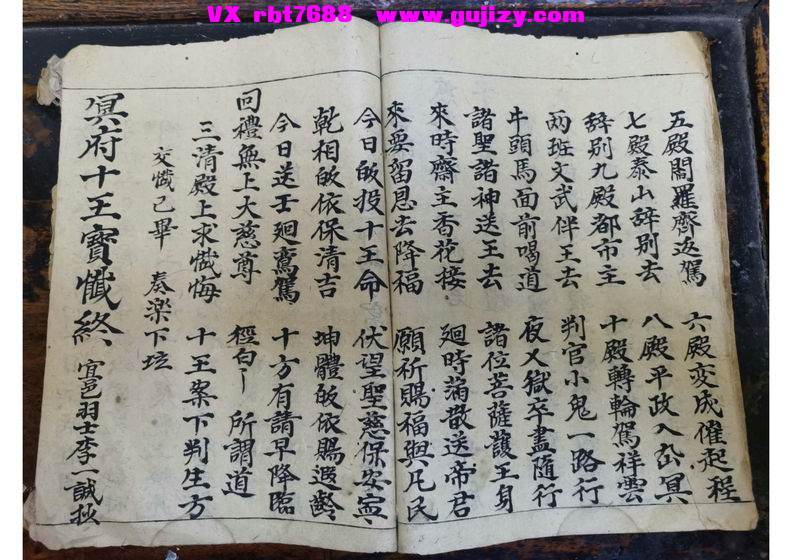 VX rbt7688 www.gujizy.com
五殿閻羅齊返駕 六殿变成催起程
七殿泰山辞別去 八殿平政入酆冥
辞別九殿都市主 十殿轉輪駕祥雲
两班文武伴王去 判官小鬼一路行
牛頭馬面前喝道 夜乂獄卒盡随行
諸聖諸神送王去 諸位菩薩護王身
來時齋主香花接 廻時满散送帝君
來要留恩去降福 願祈賜福與凡民
今日皈投十王命 伏望聖慈保安寧
乾相皈依保清吉 坤體皈依賜遐齡
今日送王廻鸞駕 十方有請早降臨
回禮無上大慈尊 經白 所謂道
三清殿上求懺悔 十王案下判生方
交懺已畢 奏樂下坛
冥府十王寶懺終 宜邑羽士李一誠抄